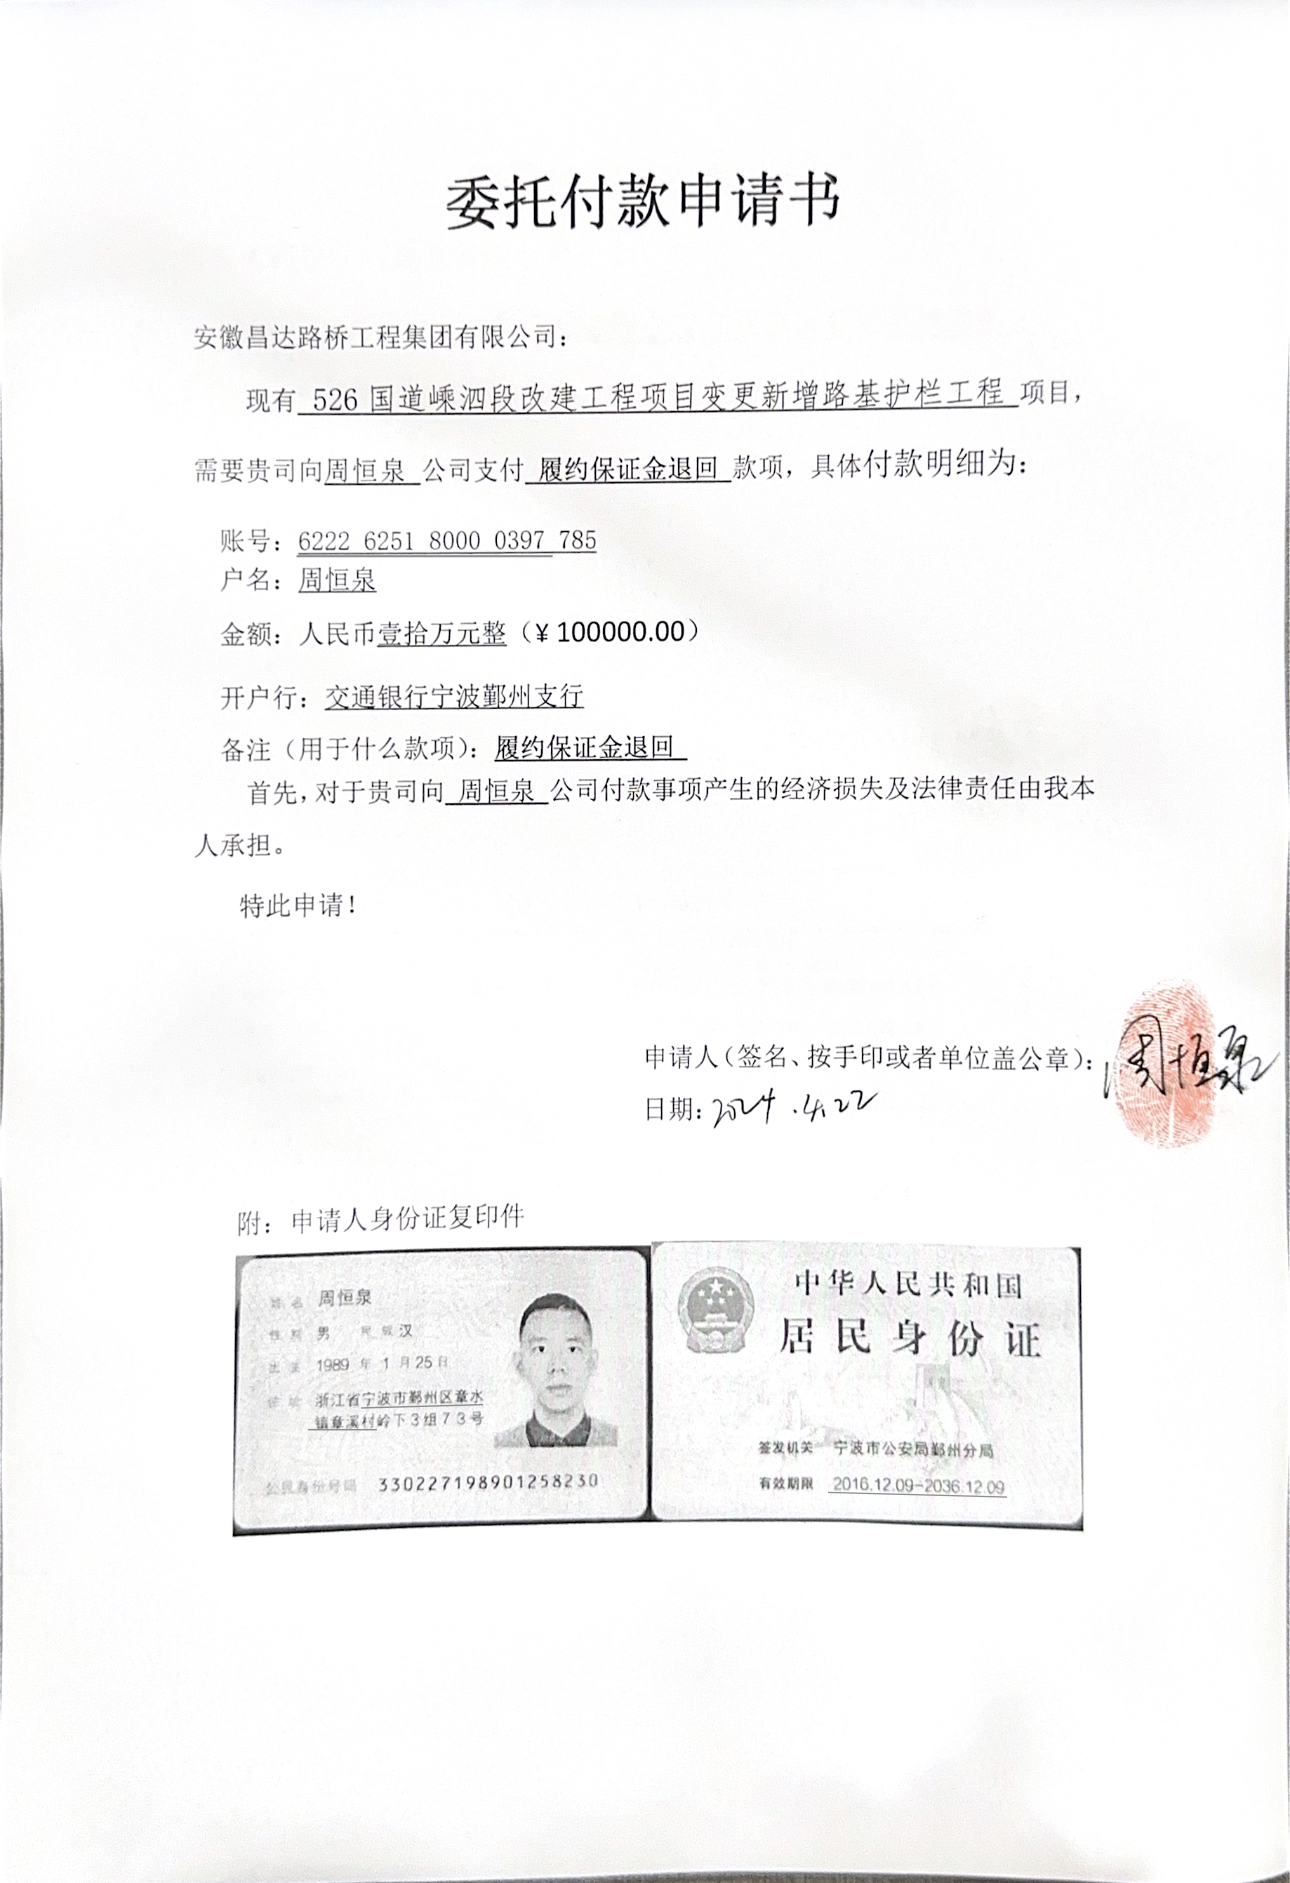 委托付款申请书
安徽昌达路桥工程集团有限公司：
现有 526 国道嵊泗段改建工程项目变更新增路基护栏工程 项目，
需要贵司向周恒泉 公司支付 履约保证金退回 款项，具体付款明细为：
账号：6222 6251 8000 0397 785
户名：周恒泉
金额：人民币壹拾万元整（¥ 100000.00）
开户行：交通银行宁波鄞州支行
备注（用于什么款项）：履约保证金退回
首先，对于贵司向 周恒泉 公司付款事项产生的经济损失及法律责任由我本
人承担。
特此申请！
申请人（签名、按手印或者单位盖公章）：周恒泉
日期：2024.4.22
附：申请人身份证复印件
姓名 周恒泉
性别 男 民族 汉
出生 1989 年 1 月 25 日
住址 浙江省宁波市鄞州区章水
镇章溪村岭下3组73号
公民身份号码 330227198901258230
中华人民共和国
居民身份证
签发机关 宁波市公安局鄞州分局
有效期限 2016.12.09-2036.12.09